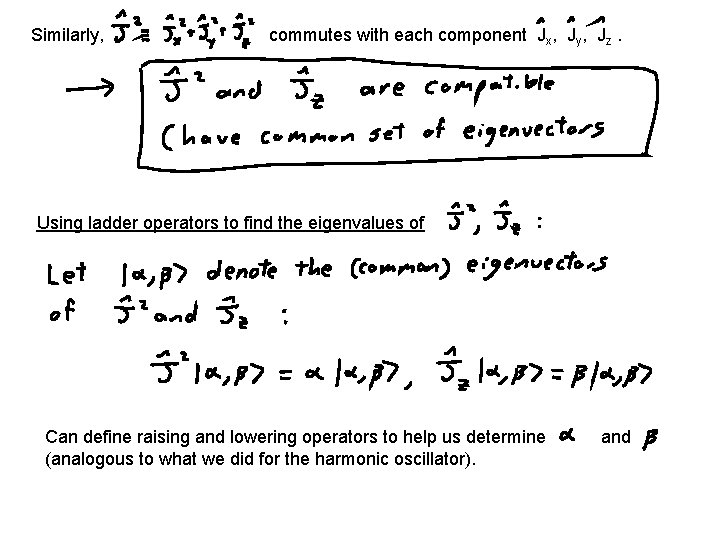 Similarly, Ĵ² ≡ Ĵx² + Ĵy² + Ĵz² commutes with each component Ĵx, Ĵy, Ĵz .
→ Ĵ² and Ĵz are compatible
(have common set of eigenvectors
Using ladder operators to find the eigenvalues of Ĵ², Ĵz :
Let |α,β> denote the (common) eigenvectors
of Ĵ² and Ĵz :
Ĵ²|α,β> = α|α,β>, Ĵz|α,β> = β|α,β>
Can define raising and lowering operators to help us determine α and β
(analogous to what we did for the harmonic oscillator).